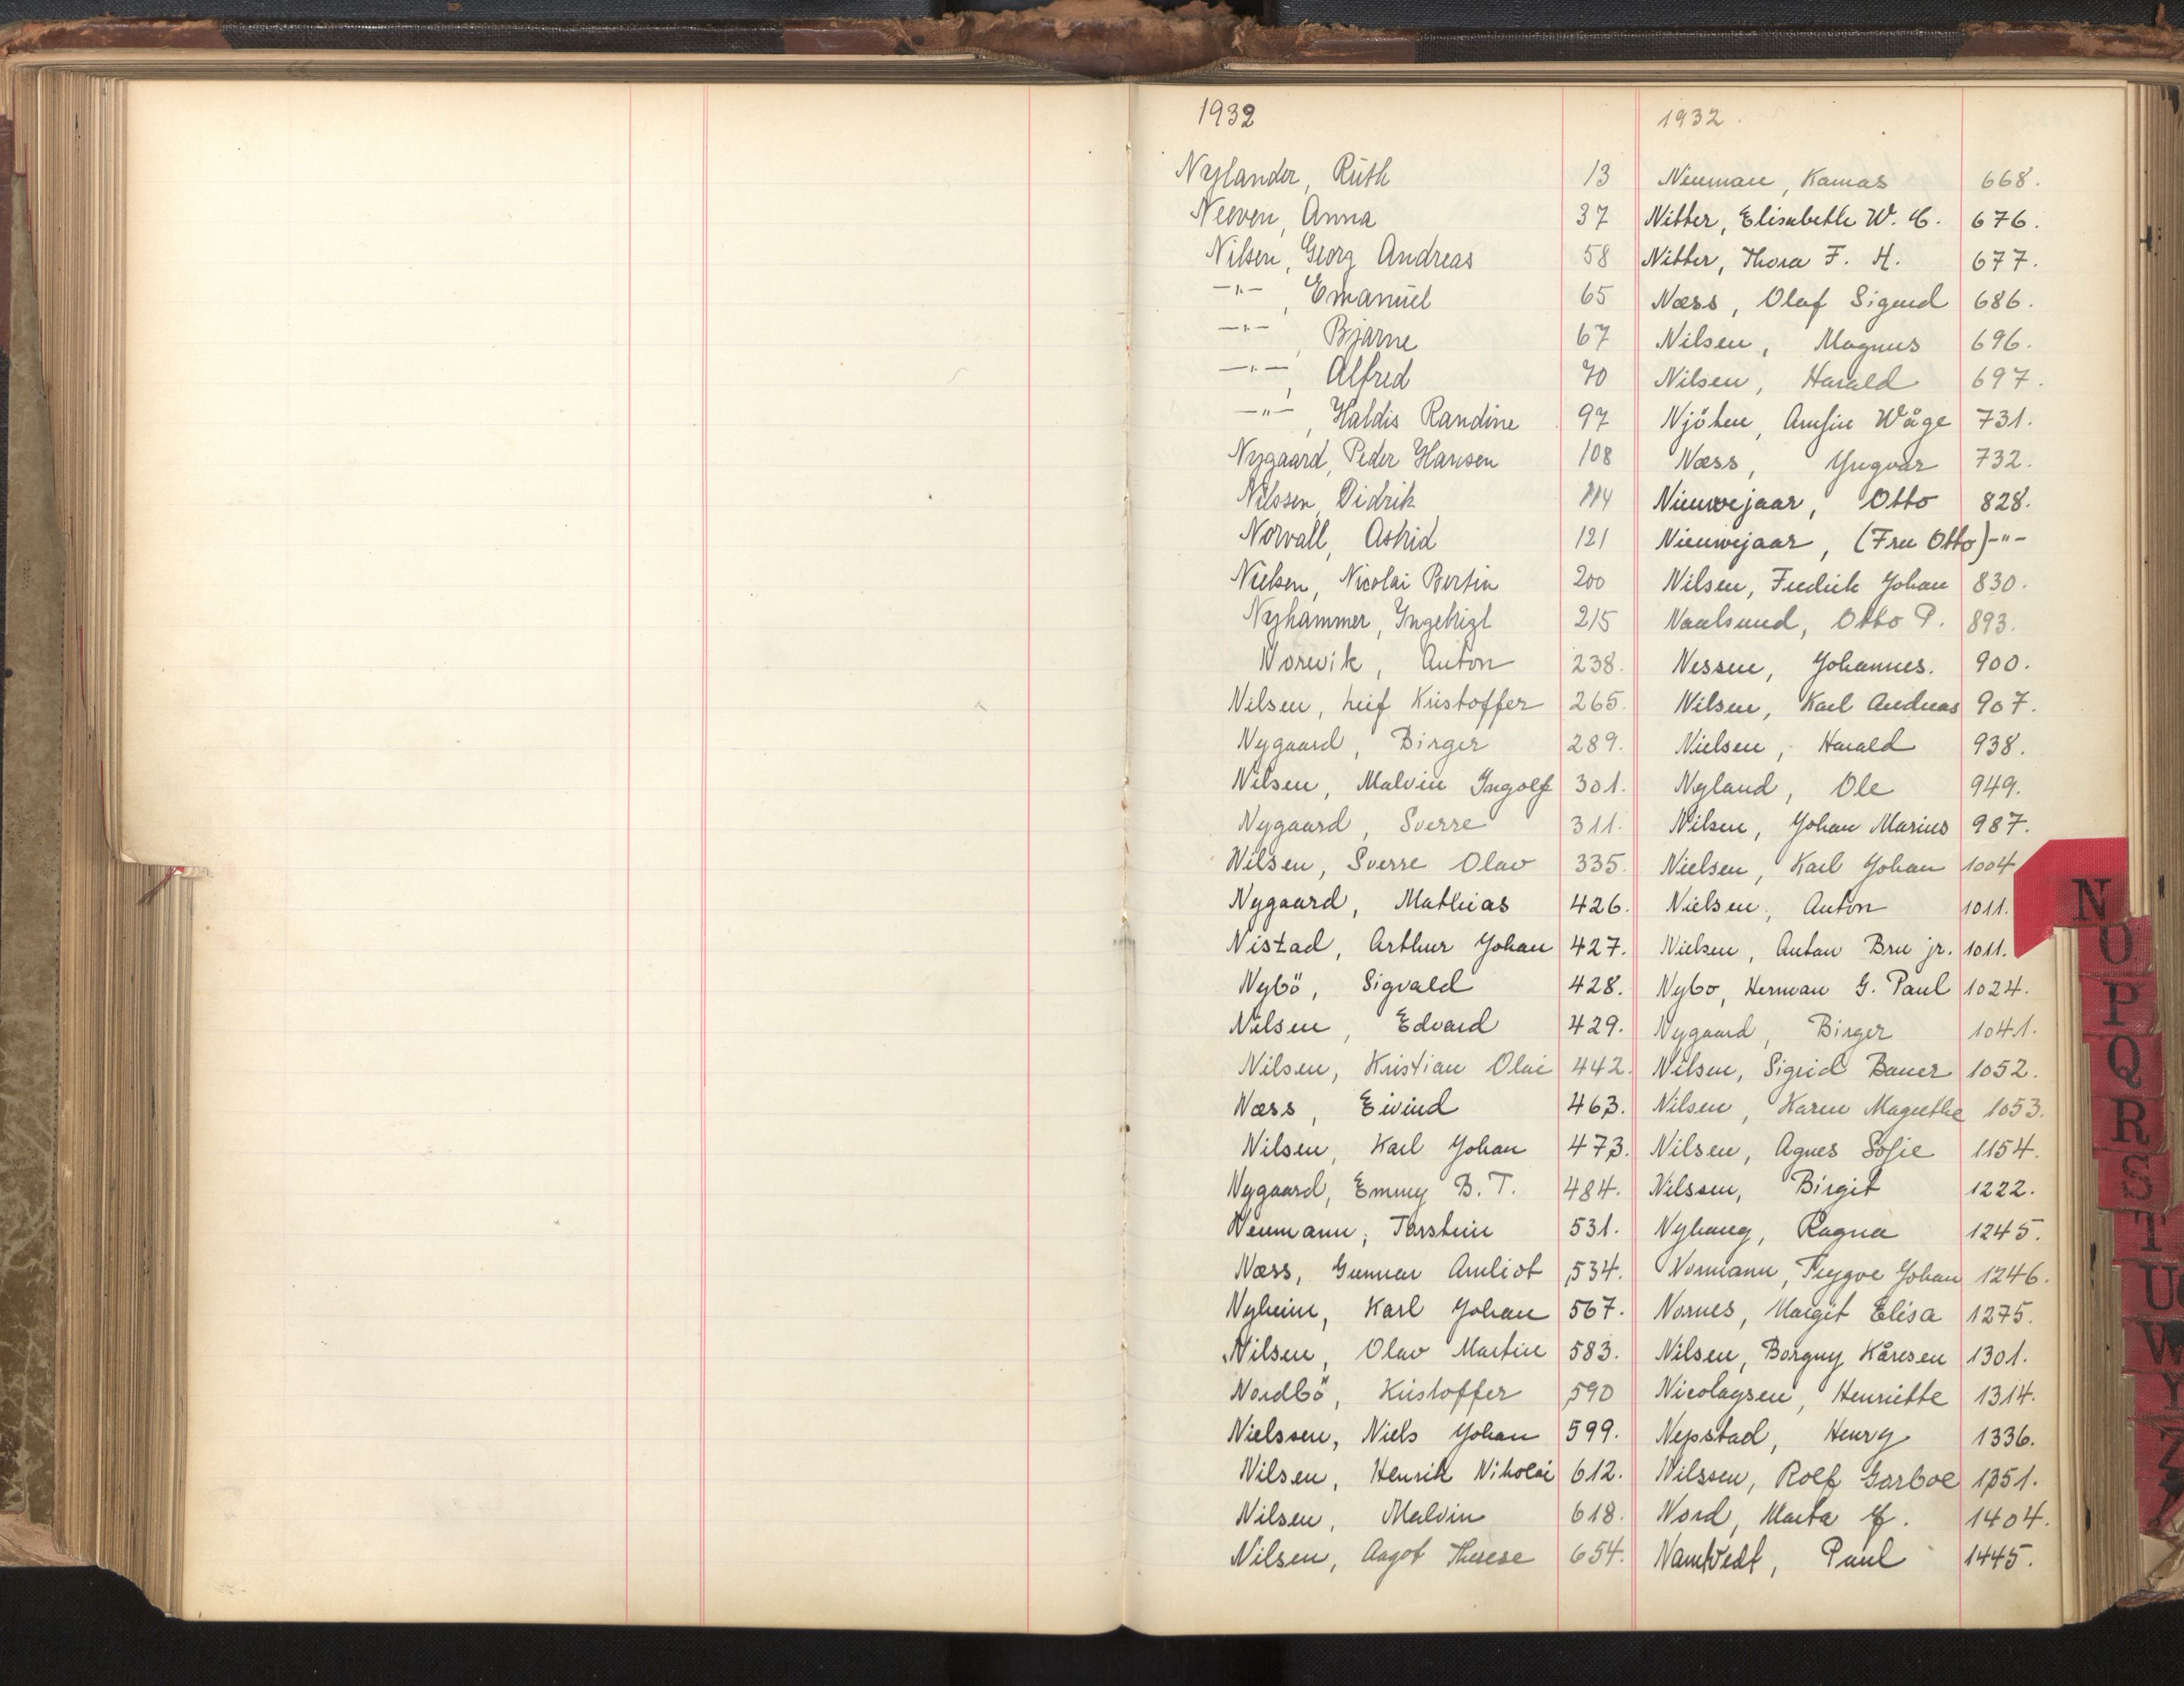 1932
Nylander, Ruth 13
Neeven, Anna 37
Nilsen, Georg Andreas 58
—"— , Emanuel 65
—"— , Bjarne 67
—"— , Alfred 70
—"— , Haldis Randine 97
Nygaard, Peder Hansen 108
Nilssen, Didrik 114
Norvall, Astrid 121
Nielsen, Nicolai Bertin 200
Nyhammer, Ingebrigt 215
Norevik, Anton 238.
Nilsen, Leif Kristoffer 265.
Nygaard, Birger 289.
Nilsen, Malvin Ingolf 301.
Nygaard, Sverre 311.
Nilsen, Sverre Olav 335.
Nygaard, Mathias 426.
Nistad, Arthur Johan 427.
Nybö, Sigvald 428.
Nilsen, Edvard 429.
Nilsen, Kristian Olai 442.
Næss, Eivind 463.
Nilsen, Karl Johan 473.
Nygaard, Emmy B. T. 484.
Neumann, Torstein 531.
Næss, Gunnar Arnliot 534.
Nyheim, Karl Johan 567.
Nilsen, Olav Martin 583.
Nordbö, Kristoffer 590
Nielssen, Niels Johan 599.
Nilsen, Henrik Nikolai 612.
Nilsen, Malvin 618.
Nilsen, Aagot Therese 654.
1932.
Neuman, Kamas 668.
Nitter, Elisabeth W. C. 676.
Nitter, Thora F. H. 677.
Næss, Olaf Sigurd 686.
Nilsen, Magnus 696.
Nilsen, Harald 697.
Njöten, Amfin Wåge 731.
Næss, Yngvar 732.
Nieuwejaar, Otto 828.
Nieuwejaar, (Fru Otto) -"-
Nilsen, Fredrik Johan 830.
Naalsund, Otto P. 893.
Nessen, Johannes. 900.
Nilsen, Karl Andreas 907.
Nielsen, Harald 938.
Nyland, Ole 949.
Nilsen, Johan Marius 987.
Nielsen, Karl Johan 1004
Nielsen, Anton 1011.
Nielsen, Anton Bru jr. 1011.
Nybo, Herman G. Paul 1024.
Nygaard, Birger 1041.
Nilsen, Sigrid Bauer 1052.
Nilsen, Karen Magrethe 1053.
Nilsen, Agnes Sofie 1154.
Nilssen, Birgit 1222.
Nyhaug, Ragna 1245.
Normann, Trygve Johan 1246.
Nornes, Margit Elisa 1275.
Nilsen, Borgny Kåresen 1301.
Nicolaysen, Henriette 1314.
Nepstad, Henry 1336.
Nilssen, Rolf Garboe 1351.
Nord, Marta 1404.
Namtvedt, Paul 1445.
N
O
P
Q
R
S
T
U
W
Y
Z